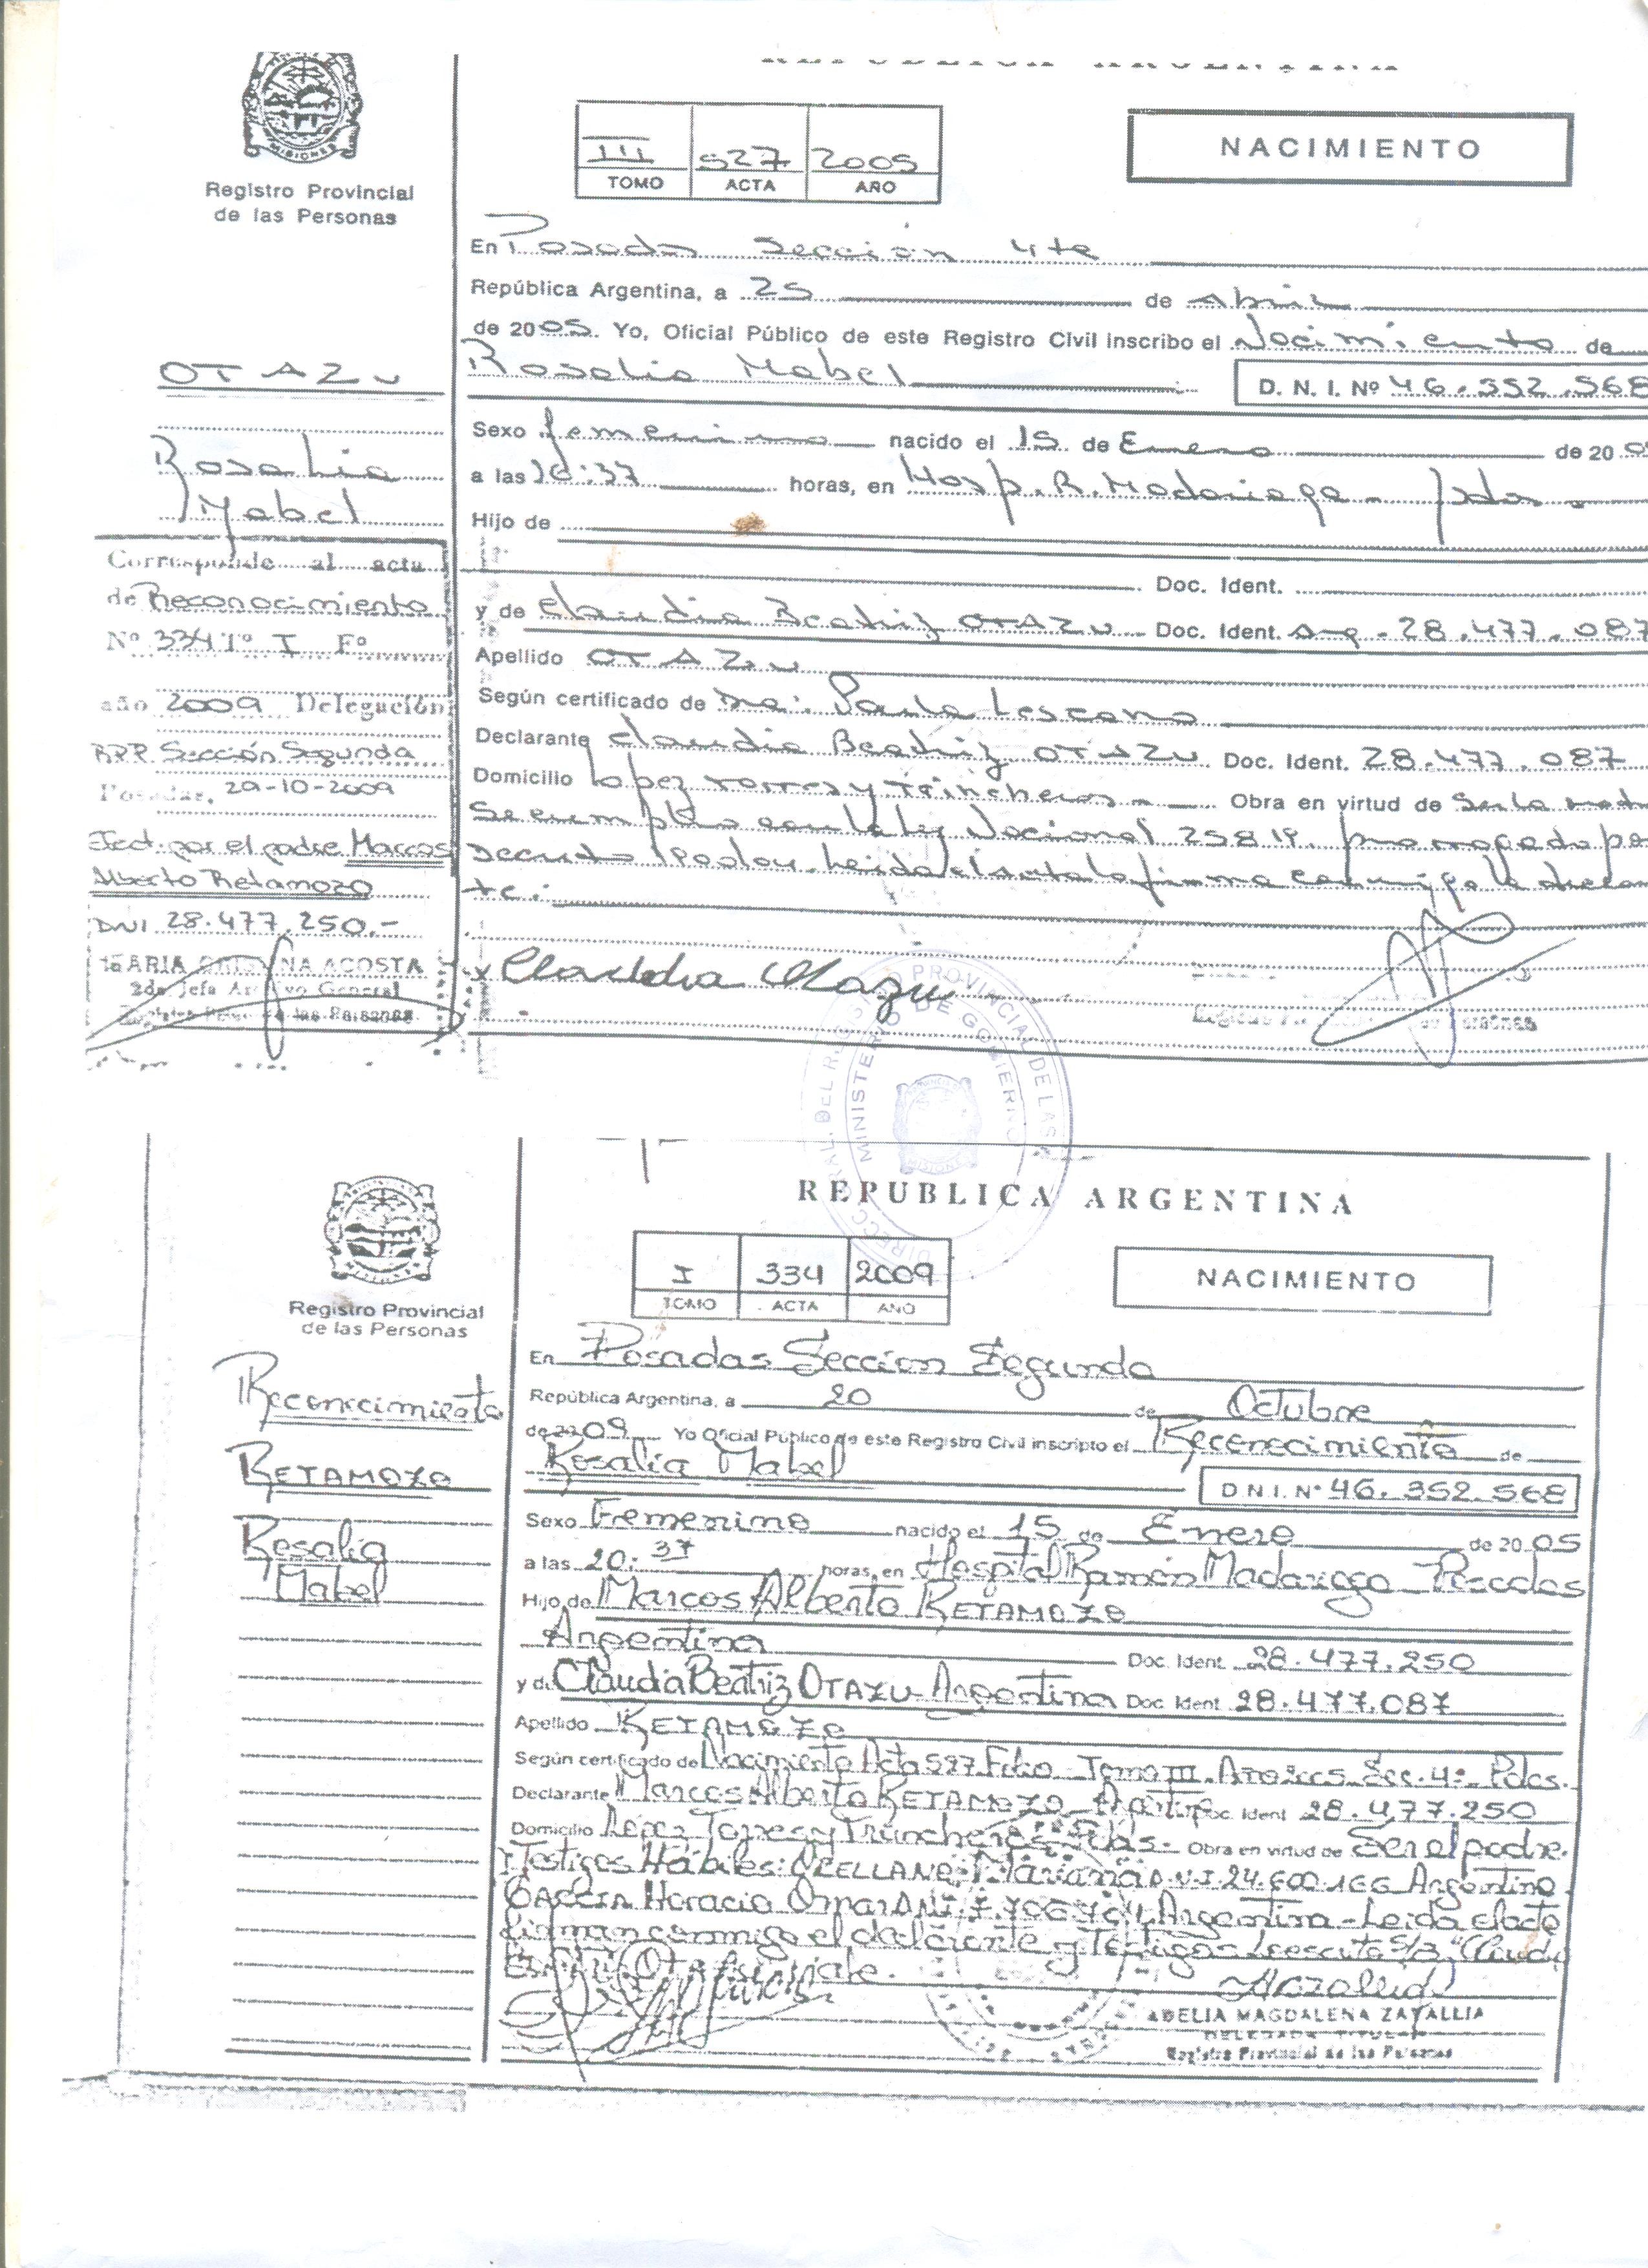 REPUBLICA ARGENTINA
MISIONES
Registro Provincial
de las Personas
III 527 2005
TOMO ACTA AÑO
NACIMIENTO
En Posadas Sección 4ta
República Argentina, a 25 de Abril
de 2005. Yo, Oficial Público de este Registro Civil inscribo el Nacimiento de
Rosalia Mabel D. N. I. Nº 46.352.568
Sexo femenino nacido el 15 de Enero de 20 05
a las 20:37 horas, en Hosp. R. Madariaga - Pdas -
Hijo de
Doc. Ident.
y de Claudia Beatriz OTAZU - Doc. Ident. Arg - 28.477.087
Apellido OTAZU
Según certificado de Paula Lescano
Declarante Claudia Beatriz OTAZU Doc. Ident. 28.477.087
Domicilio Lopez Torres y Trincheras - Obra en virtud de Ser la madre
Se cumple con la ley Nacional 25819. prorrogado por
Decreto Leida el acta la firma conmigo la declaran
te:
Claudia Otazu
OTAZU
Rosalia
Mabel
Corresponde al acta
de Reconocimiento
Nº 334 Tº I Fº
año 2009 Delegación
RPP. Sección Segunda
Posadas, 20-10-2009
Efect. por el padre Marcos
Alberto Retamozo
DNI 28.477.250.-
MARIA CRISTINA ACOSTA
2da Jefa Archivo General
Registro Prov. de las Personas
DIRECC. GRAL. DEL REGISTRO PROVINCIAL DE LAS
MINISTERIO DE GOBIERNO
MISIONES
REPUBLICA ARGENTINA
MISIONES
Registro Provincial
de las Personas
I 334 2009
TOMO ACTA AÑO
NACIMIENTO
Reconocimiento
RETAMOZO
Rosalia
Mabel
En Posadas Seccion Segunda
República Argentina, a 20 de Octubre
de 2009 Yo Oficial Público de este Registro Civil inscripto el Reconocimiento de
Rosalia Mabel D.N.I. Nº 46.352.568
Sexo Femenino nacido el 15 de Enero de 20 05
a las 20:37 horas, en Hospital Ramón Madariaga Posadas
Hijo de Marcos Alberto RETAMOZO
Argentina Doc. Ident. 28.477.250
y de Claudia Beatriz OTAZU Argentina Doc. Ident. 28.477.087
Apellido RETAMOZO
Según certificado de Nacimiento Acta 527 Folio - Tomo III. Año 2005 Sec. 4º Pdas.
Declarante Marcos Alberto RETAMOZO Argentina Doc. Ident. 28.477.250
Domicilio López Torres y Trincheras - Pdas - Obra en virtud de Ser el padre.
Testigos Hábiles: ORELLANO, Mariana D.N.I. 24.600.166 Argentina
GARCIA Horacio Omar DNI. Argentina - Leida el acta
Firman conmigo el declarante y Testigos
ADELIA MAGDALENA ZAYALLIA
DELEGADA TITULAR
Registro Provincial de las Personas